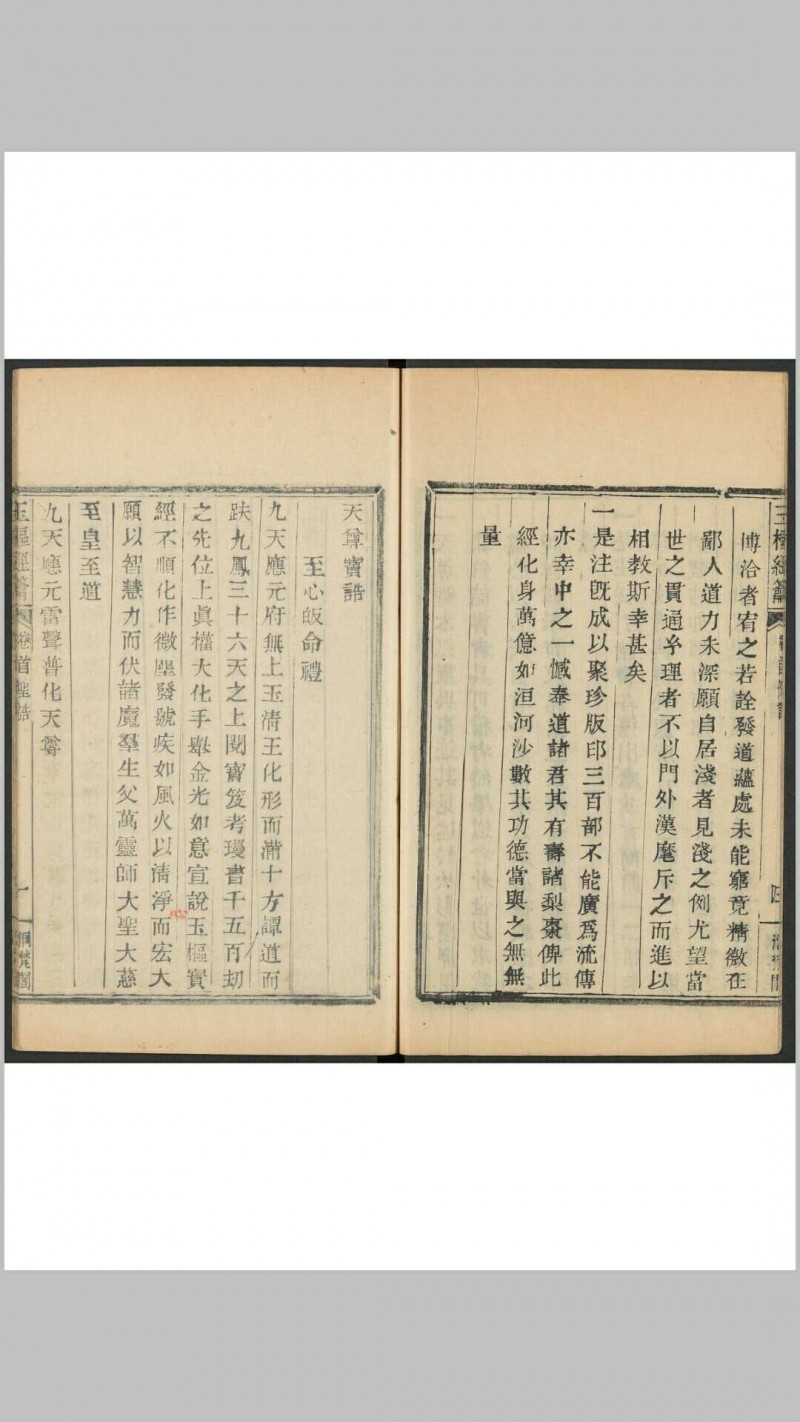 博洽者宥之若詮發道蘊處未能窮竟精微在
鄙人道力未深願自居淺者見淺之例尤望當
世之貫通玄理者不以門外漢麾斥之而進以
相教斯幸甚矣
一是注旣成以聚珍版印三百部不能廣爲流傳
亦幸中之一憾奉道諸君其有壽諸梨棗俾此
經化身萬億如洹河沙數其功德當與之無無
量
天尊寶誥
至心皈命禮
九天應元府無上玉清王化形而滿十方譚道而
趺九鳳三十六天之上閱寳笈考璦書千五百劫
之先位上眞權大化手舉金光如意宣說玉樞寳
經不順化作微塵發號疾如風火以清淨心而宏大
願以智慧力而伏諸魔羣生父萬靈師大聖大慈
至皇至道
九天應元雷聲普化天尊
玉樞經籥
卷首聖誥
一